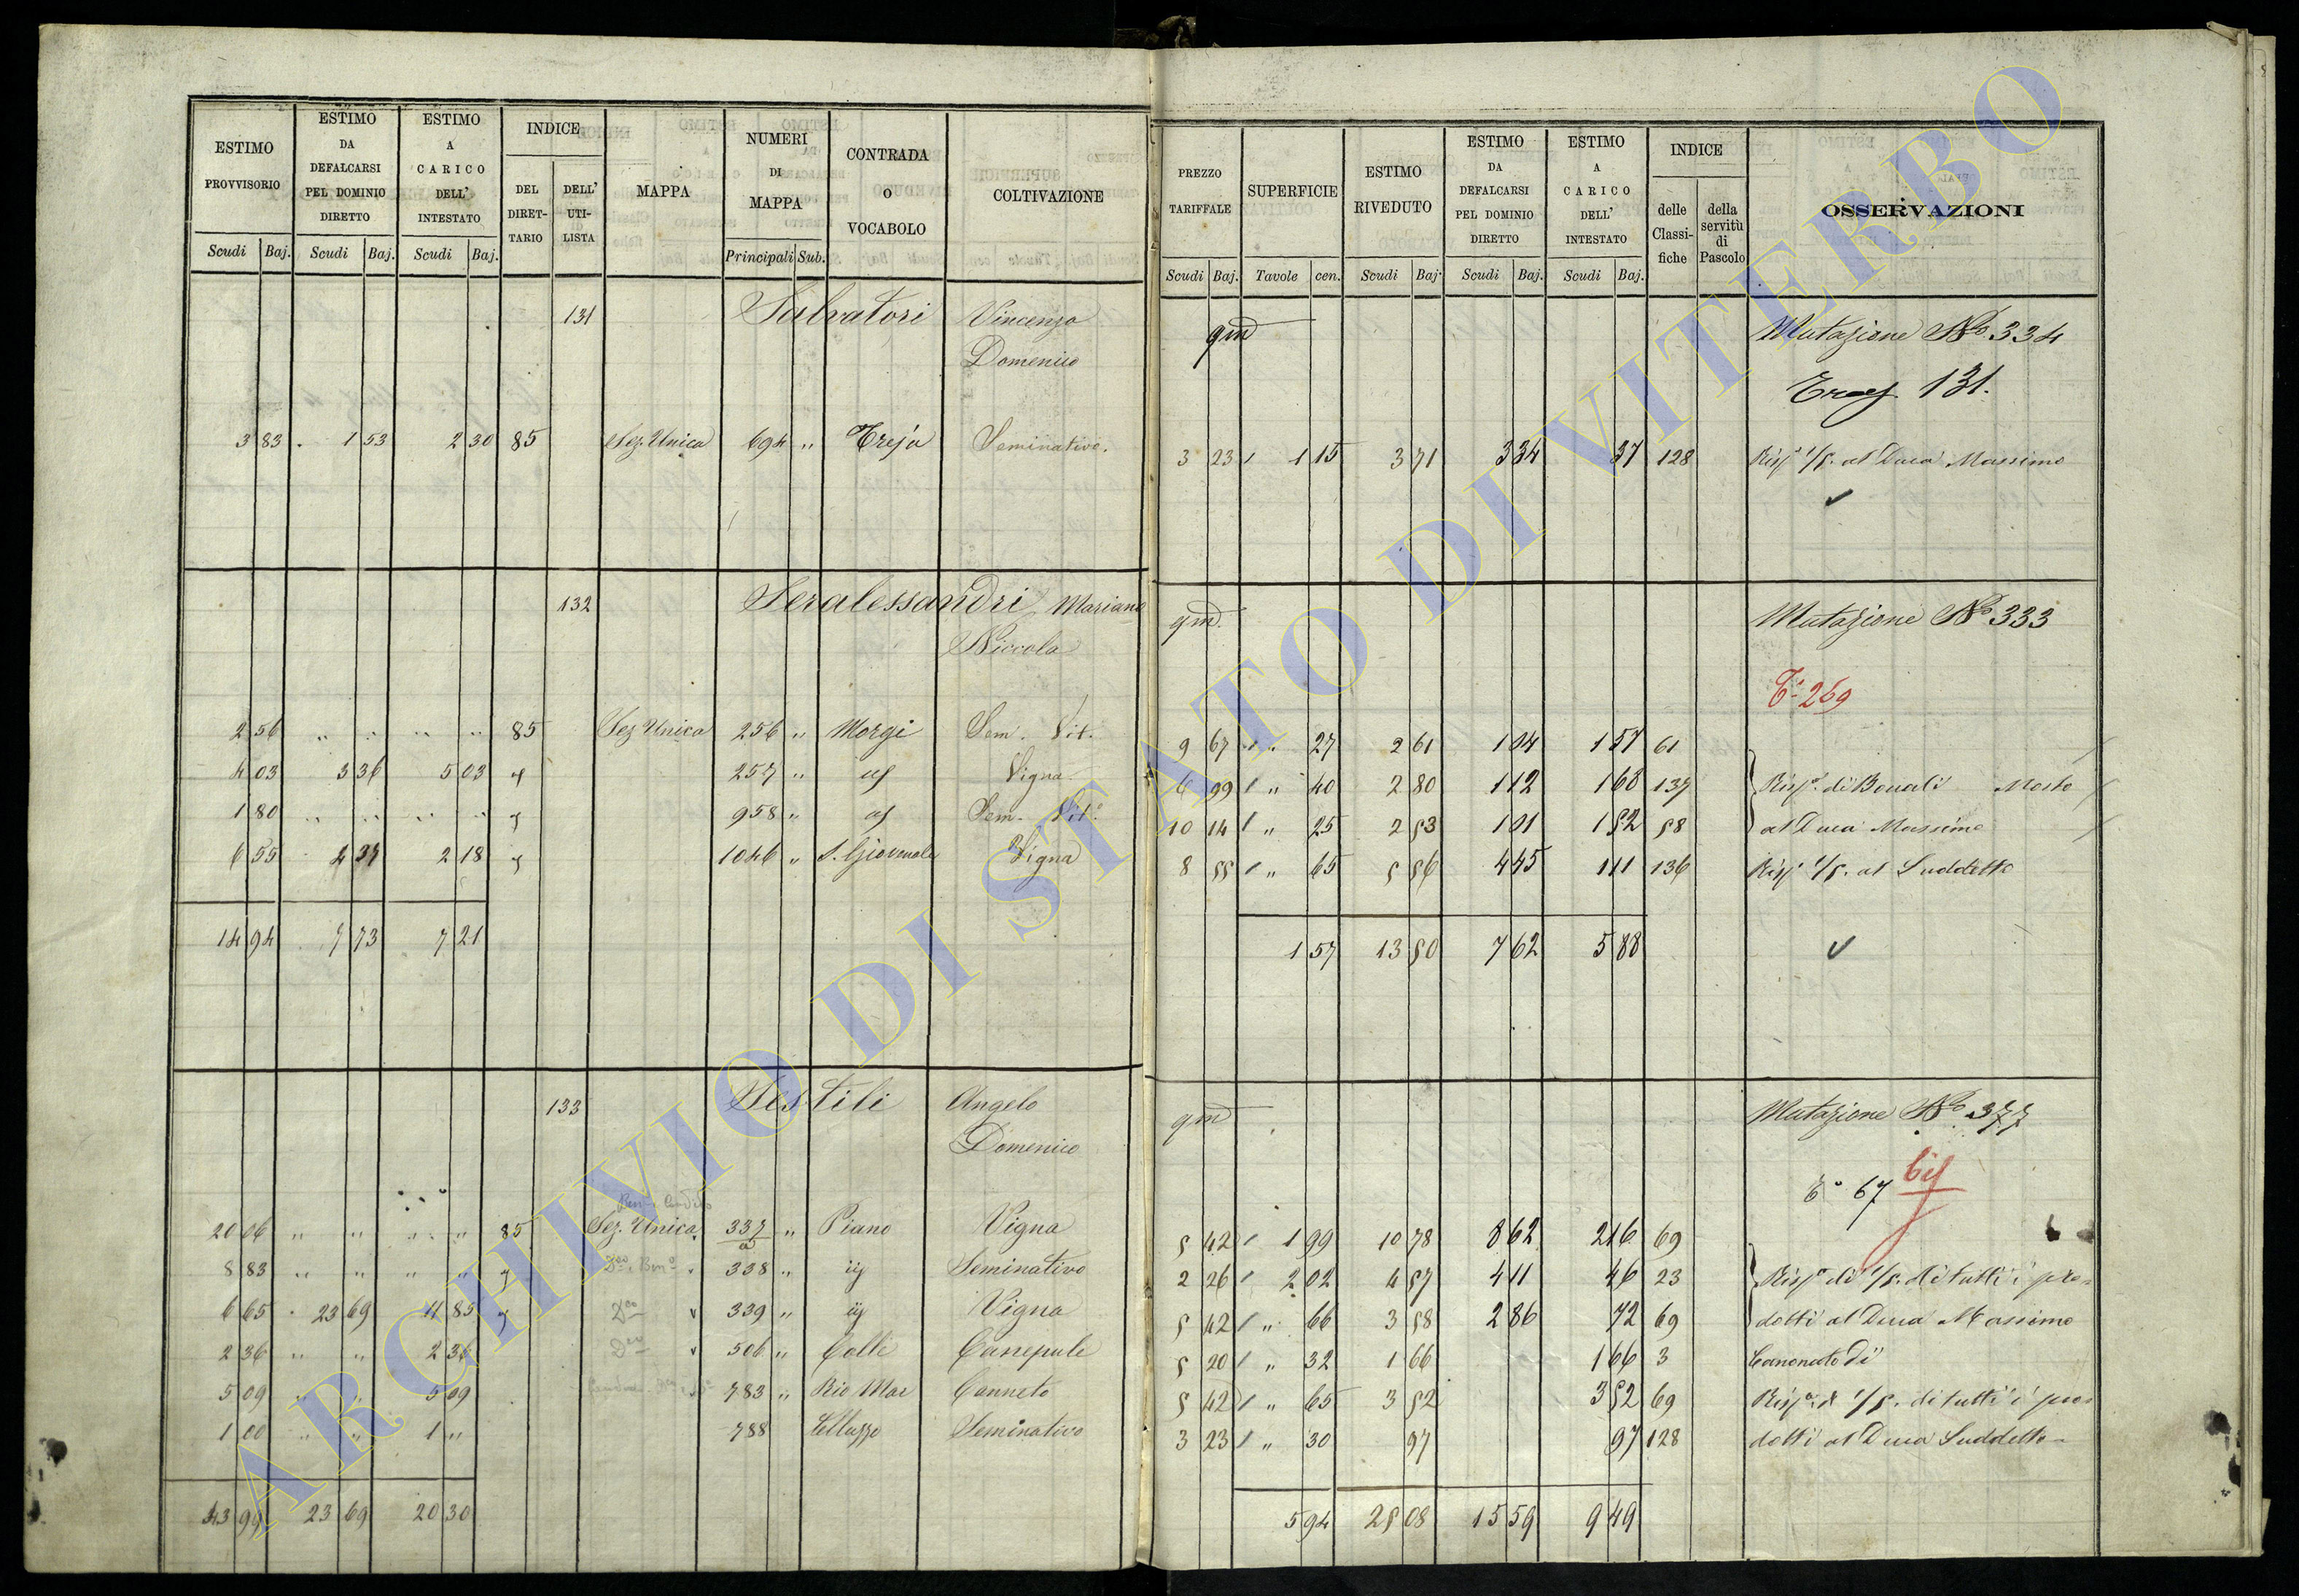 ESTIMO PROVVISORIO
ESTIMO DA DEFALCARSI PEL DOMINIO DIRETTO
ESTIMO A CARICO DELL' INTESTATO
INDICE
DEL DIRETTARIO
DELL' UTILISTA
MAPPA
NUMERI DI MAPPA
CONTRADA O VOCABOLO
COLTIVAZIONE
Scudi Baj. Scudi Baj. Scudi Baj. Principali Sub.
PREZZO TARIFFALE
SUPERFICIE
ESTIMO RIVEDUTO
ESTIMO DA DEFALCARSI PEL DOMINIO DIRETTO
ESTIMO A CARICO DELL' INTESTATO
INDICE
delle Classifiche
della servitù di Pascolo
OSSERVAZIONI
Scudi Baj. Tavole cen. Scudi Baj. Scudi Baj. Scudi Baj.
131 Salvatori Vincenzo qm Mutazione No. 334
Domenico
131.
3 83 1 53 2 30 85 Sez. Unica 694 " Treja Seminativo. 3 23 1 15 3 71 3 34 37 128 al Duca Massimo
132 Seralessandri Mariano qm. Mutazione No 333
Niccola
269
2 56 " " " " 85 Sez Unica 256 " Morgi Sem. Vit. 9 67 " 27 2 61 1 04 1 57 61
4 03 3 36 5 03 257 " Vigna 6 99 " 40 2 80 1 12 1 68 137 Mosto
1 80 " " " " 958 " Sem. Vit. 10 14 " 25 2 53 1 01 1 52 58 al Duca Massimo
6 55 4 37 2 18 1046 " S. Giovenale Vigna 8 55 " 65 5 56 4 45 1 11 136 al Suddetto
14 94 7 73 7 21 1 57 13 50 7 62 5 88
133 Sestili Angelo qm Mutazione No 377
Domenico
67
20 06 " " " " 85 Sez. Unica 337 " Piano Vigna 5 42 1 99 10 78 8 62 2 16 69
8 83 " " " " 338 " Seminativo 2 26 2 02 4 57 4 11 46 23 di tutti i pro-
6 65 23 69 11 85 339 " Vigna 5 42 " 66 3 58 2 86 72 69 dotti al Duca Massimo
2 36 " " 2 36 506 " Colle Canepule 5 20 " 32 1 66 1 66 3
5 09 " " 5 09 783 " Rio Mar Canneto 5 42 " 65 3 52 3 52 69 di tutti i pro-
1 00 " " 1 " 788 Seminativo 3 23 " 30 97 97 128 dotti al Duca Suddetto
43 99 23 69 20 30 5 94 25 08 15 59 9 49
ARCHIVIO DI STATO DI VITERBO